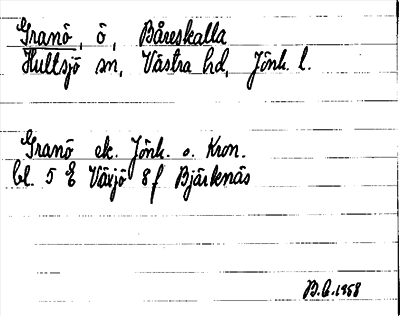 Granö, ö, Båreskalla
Hultsjö sn, Västra hd, Jönk. l.
Granö ek. Jönk. o. Kron.
bl. 5 E Växjö 8 f Bjärknäs
B.C. 1958